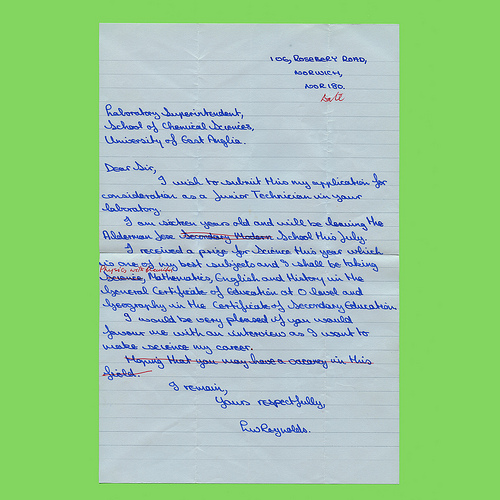 106, ROSEBERY ROAD,
NORWICH,
NOR 180.
Date
Laboratory Superintendent,
School of Chemical Sciences,
University of East Anglia.
Dear Sir,
I wish to submit this my application for
consideration as a Junior Technician in your
laboratory.
I am sixteen years old and will be leaving the
Alderman Jexe Secondary Modern School this July.
I received a prize for Science this year which
is one of my best subjects and I shall be taking
Physics with Chemistry
Science, Mathematics, English and History in the
General Certificate of Education at O level and
Geography in the Certificate of Secondary Education
I would be very pleased if you would
favour me with an interview as I want to
make science my career.
Hoping that you may have a vacancy in this
field.
I remain,
Yours respectfully,
Reynolds.